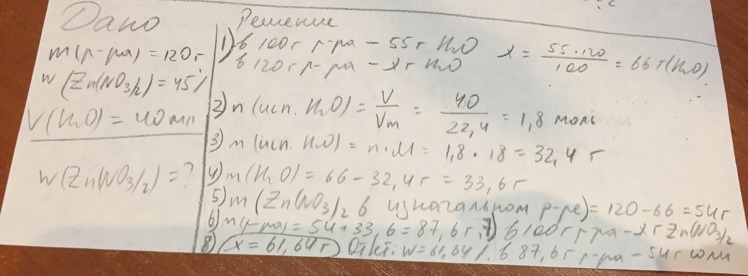 Дано
m(р-ра) = 120 г
w (Zn(NO3)2) = 45%
V(H2O) = 40 мл
w(Zn(NO3)2) = ?
Решение
1) в 100 г р-ра – 55 г H2O x = 55·120/100 = 66 г (H2O)
в 120 г р-ра – x г H2O
2) n (исп. H2O) = V/Vm = 40/22,4 = 1,8 моль
3) m (исп. H2O) = n·M = 1,8 · 18 = 32,4 г
4) m(H2O) = 66 - 32,4 г = 33,6 г
5) m (Zn(NO3)2 в изначальном р-ре) = 120 - 66 = 54 г
6) m(р-ра) = 54 + 33,6 = 87,6 г. 7) в 100 г р-ра – x г Zn(NO3)2
8) x = 61,64 г Ответ: w = 61,64% в 87,6 г р-ра – 54 г соли